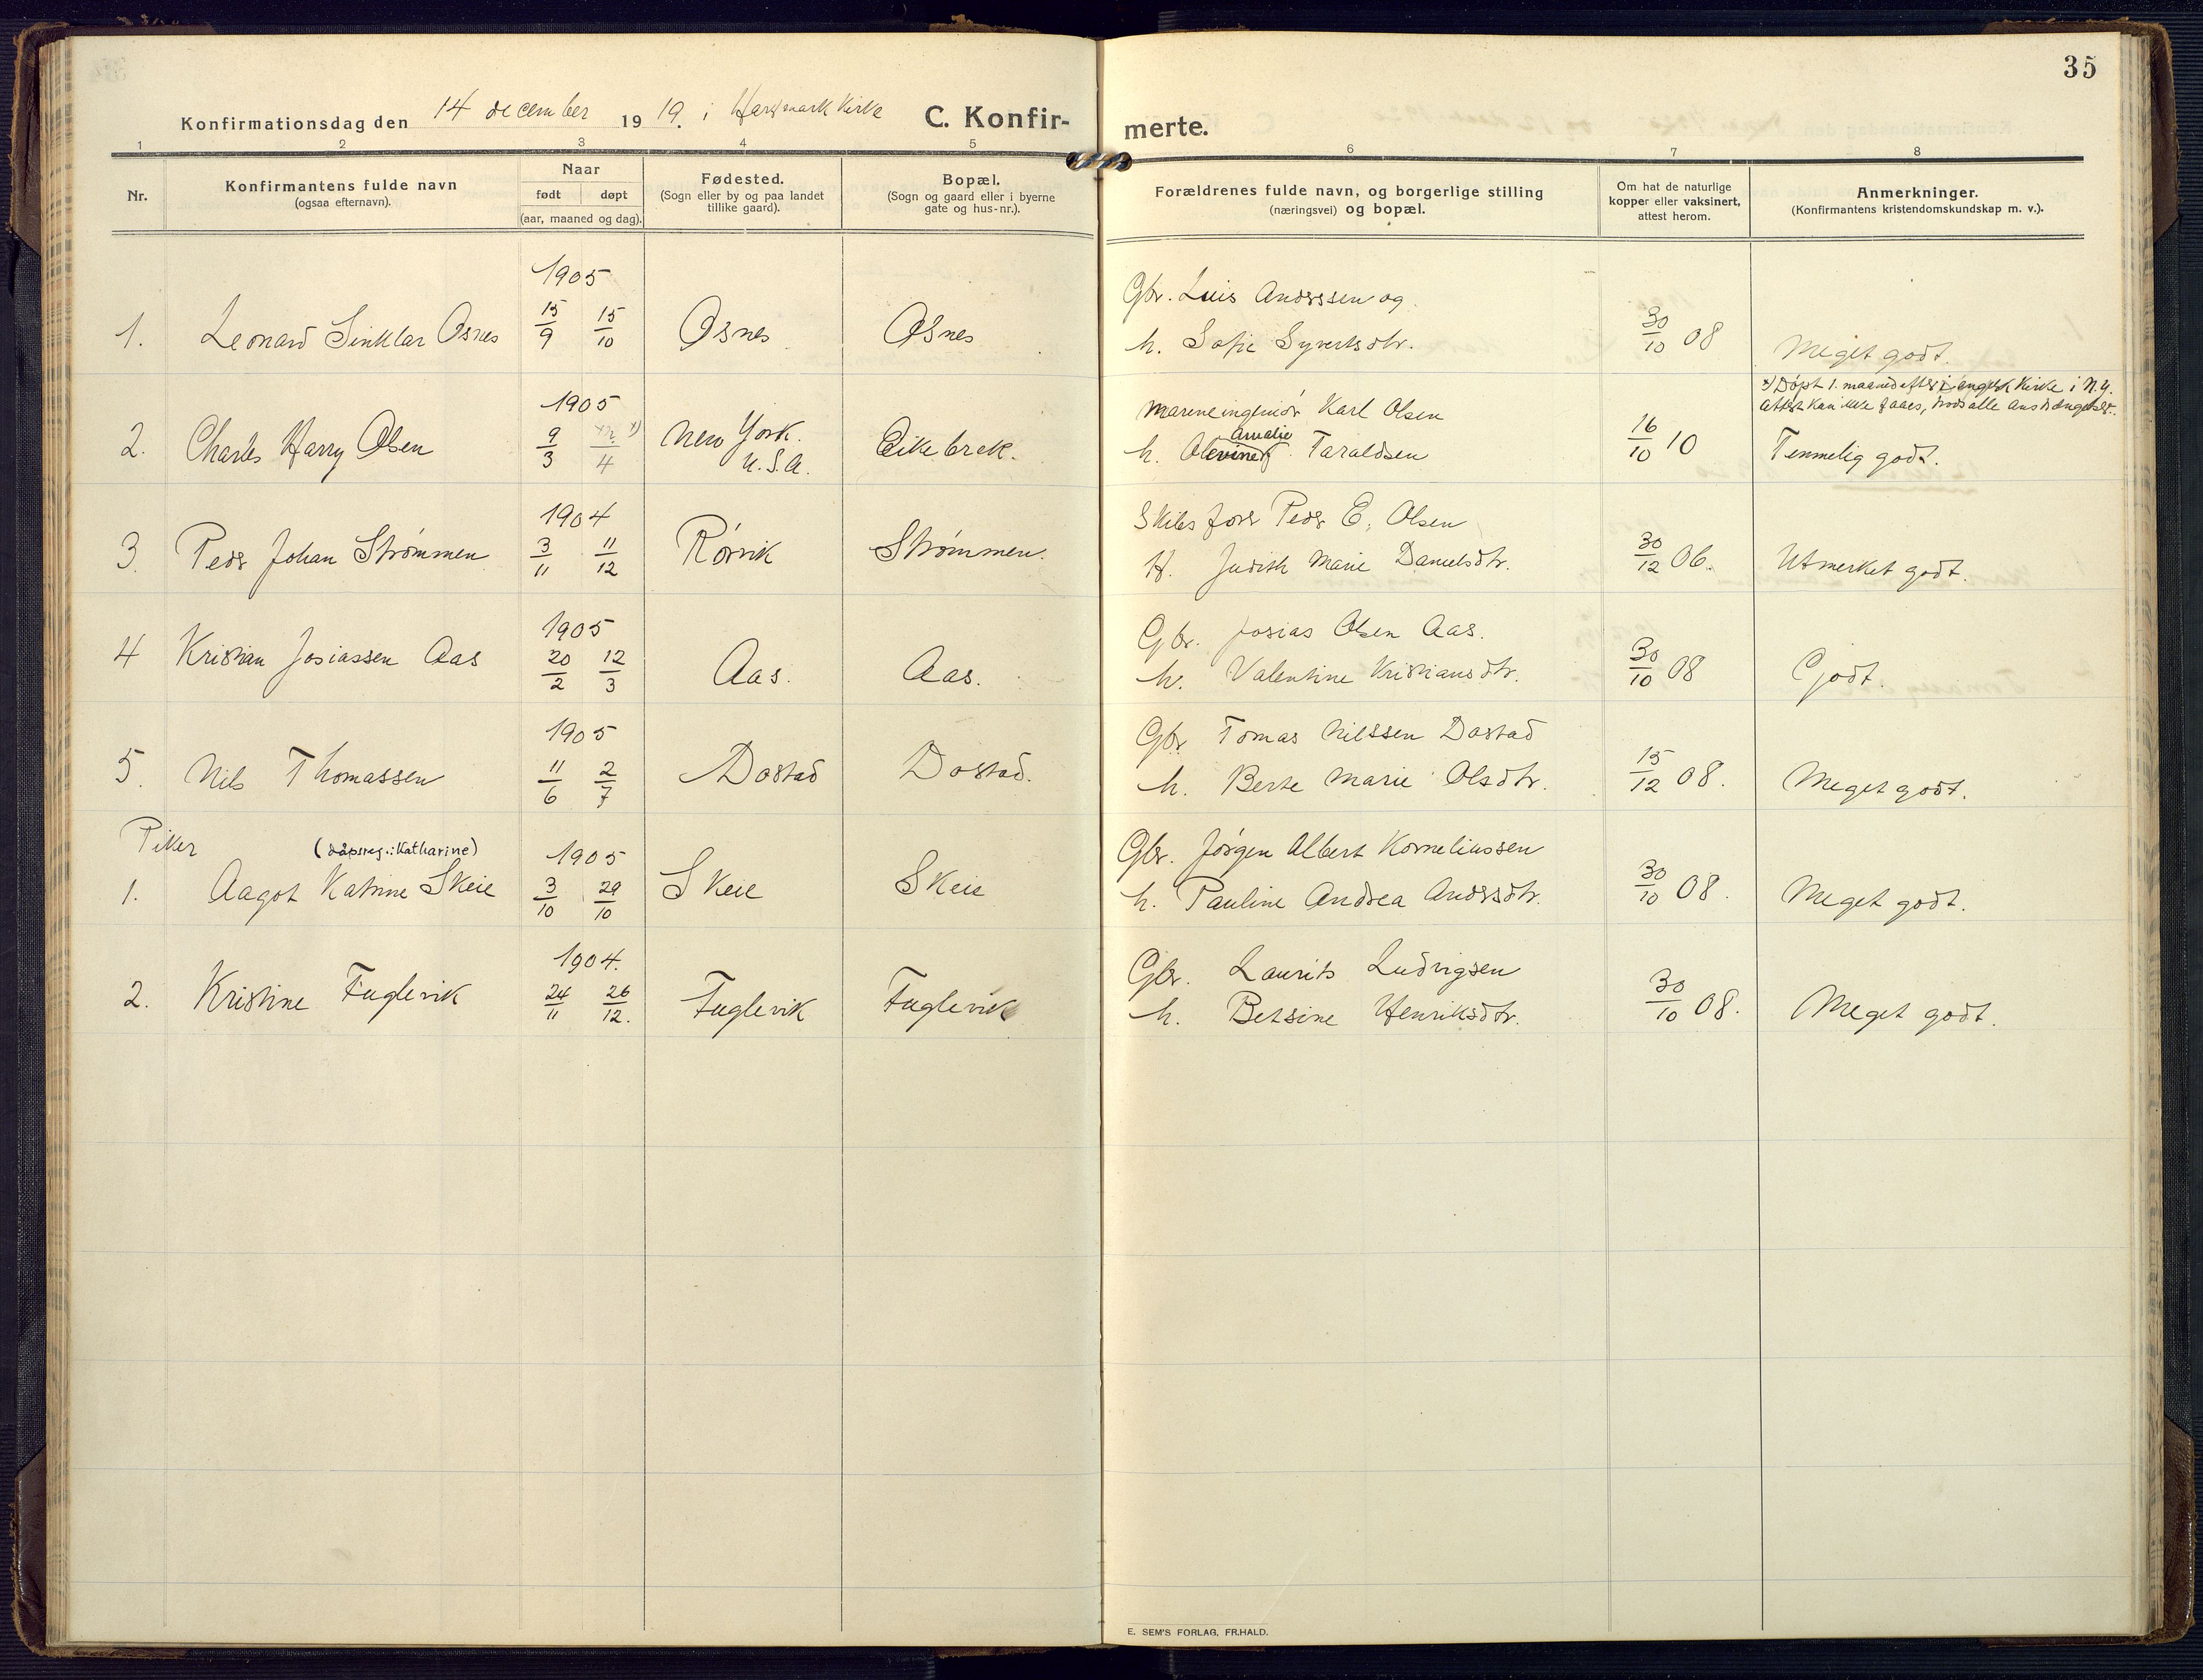 35
Konfirmationsdag den 14 december 1919. i Harkmark Kirke C. Konfir- merte.
1 2 3 4 5 6 7 8
Nr.
Konfirmantens fulde navn
(ogsaa efternavn).
Naar
født døpt
(aar, maaned og dag).
Fødested.
(Sogn eller by og paa landet
tillike gaard).
Bopæl.
(Sogn og gaard eller i byerne
gate og hus-nr.).
Forældrenes fulde navn, og borgerlige stilling
(næringsvei) og bopæl.
Om hat de naturlige
kopper eller vaksinert,
attest herom.
Anmerkninger.
(Konfirmantens kristendomskundskap m. v.).
1905
Gbr. Luis Anderssen og
1. Leonard Sinklar Osnes 15/9 15/10 Osnes Osnes h. Sofie Syvertsdtr. 30/10 08 Meget godt.
x) Døpt 1. maaned efter i engelsk Kirke i N.Y.
Attest kan ikke faaes, trods alle anstrængelser.
1905
Marineingeniør Karl Olsen
Amalie
2. Charles Harry Olsen 9/3 /4 x) New York. U.S.A. Eikebrek. h. Taraldsen 16/10 10 Temmelig godt.
1904
Skibsfører Peder E. Olsen
3. Peder Johan Strømmen 3/11 11/12 Rørvik Strømmen. H. Judith Marie Danielsdtr. 30/12 06. Utmerket godt.
1905
Gbr. Josias Olsen Aas.
4 Kristian Josiassen Aas 20/2 12/3 Aas. Aas. h. Valentine Kristiansdtr. 30/10 08 Godt.
1905
Gbr. Tomas Nilssen Døstad
5. Nils Thomassen 11/6 2/7 Døstad Døstad. h. Berte Marie Olsdtr. 15/12 08. Meget godt.
Piker (dåpsreg.: Katharine)
1905
Gbr. Jørgen Albert Korneliussen
1. Aagot Katrine Skeie 3/10 29/10 Skeie Skeie h. Pauline Andrea Andersdtr. 30/10 08. Meget godt.
1904.
Gbr. Laurits Ludvigsen
2. Kristine Fuglevik 24/11 26/12. Fuglevik Fuglevik h. Betsine Henriksdtr. 30/10 08. Meget godt.
E. SEM'S FORLAG, FR.HALD.